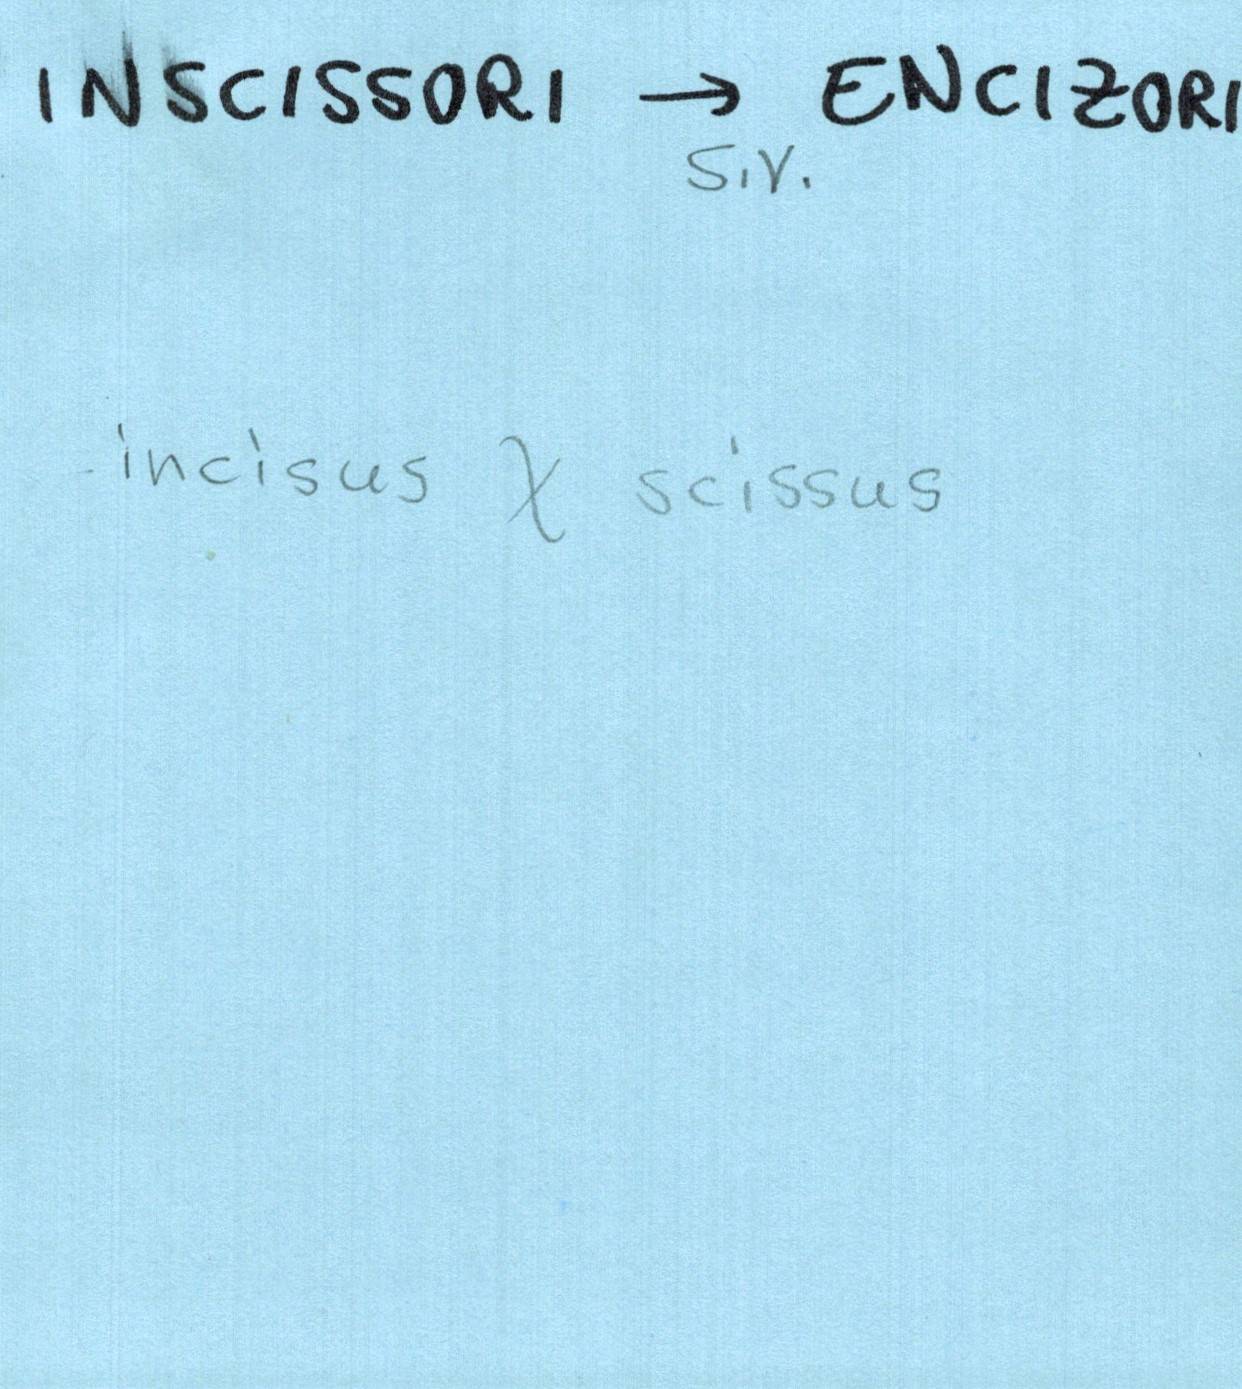 INSCISSORI → ENCIZORI
S.V.
incisus χ scissus